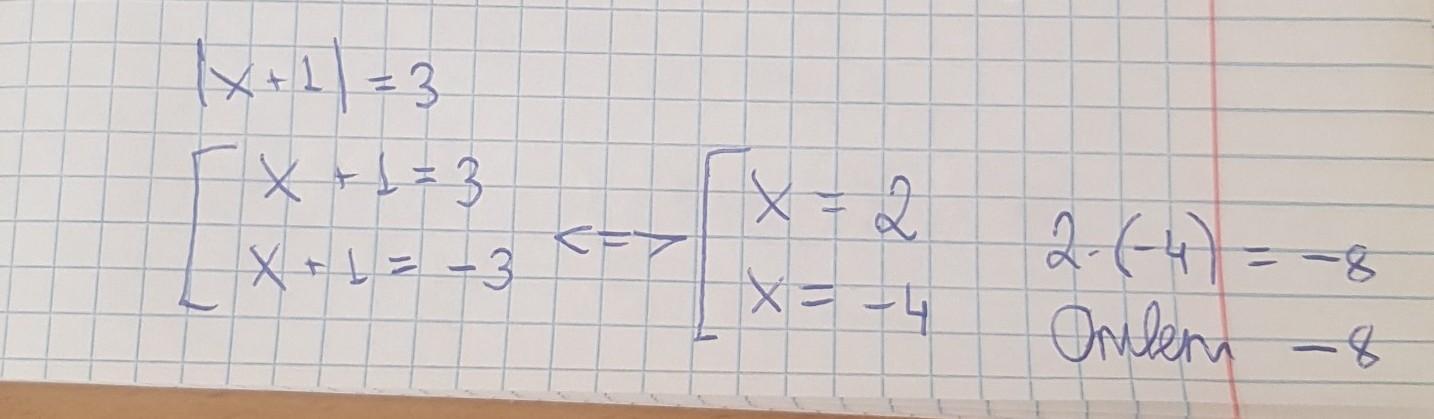 |x+1| = 3
x + 1 = 3
x + 1 = -3
<=>
x = 2
x = -4
2·(-4) = -8
Ответ -8